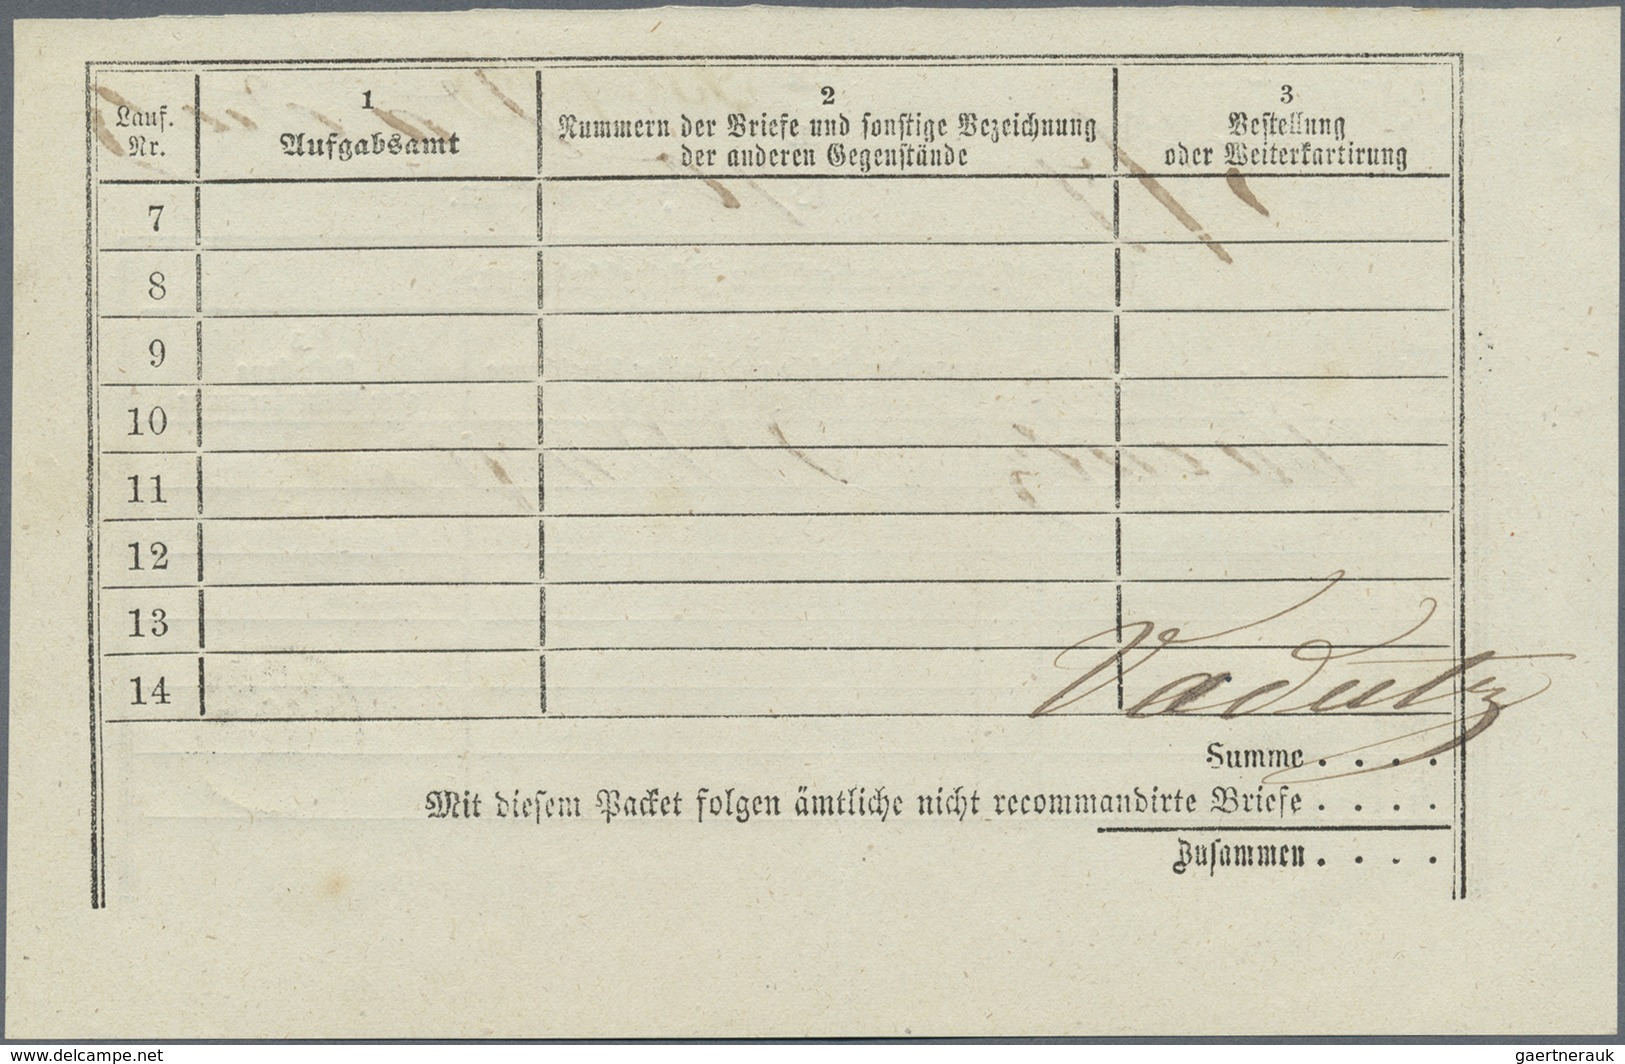 Lauf. Nr.
1
Aufgabsamt
2
Nummern der Briefe und sonstige Bezeichnung
der anderen Gegenstände
3
Bestellung
oder Weiterkartirung
7
8
9
10
11
12
13
14
Vadutz
Summe . . . .
Mit diesem Packet folgen ämtliche nicht recommandirte Briefe . . . .
Zusammen . . . .
www.delcampe.net
gaertnerauk